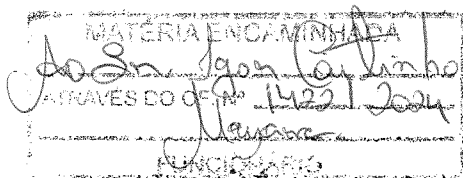 MATÉRIA ENCAMINHADA
Ao Sr. Igor
ATRAVÉS DO OF. Nº 1422/2024
Mayara
FUNCIONÁRIO